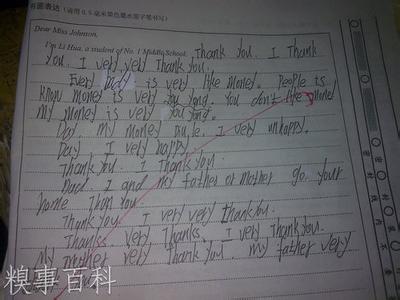 书面表达（请用0.5毫米黑色墨水签字笔书写）
Dear Miss Johnson,
I'm Li Hua, a student of No. 1 Middle School. Thank you. I Thank
You. I very very Thank you.
Every body is very like money. People is
know money is very You Yong. You don't like money
My money is very You Yong.
Day my money I very unhappy.
Day I very happy.
Thank you. I Thank you.
I and my father or mother go your
home Than you.
Thank you. I very very thank you.
Thanks very Thanks. I very Thank you.
My mother very Thank you. my father very
糗事百科